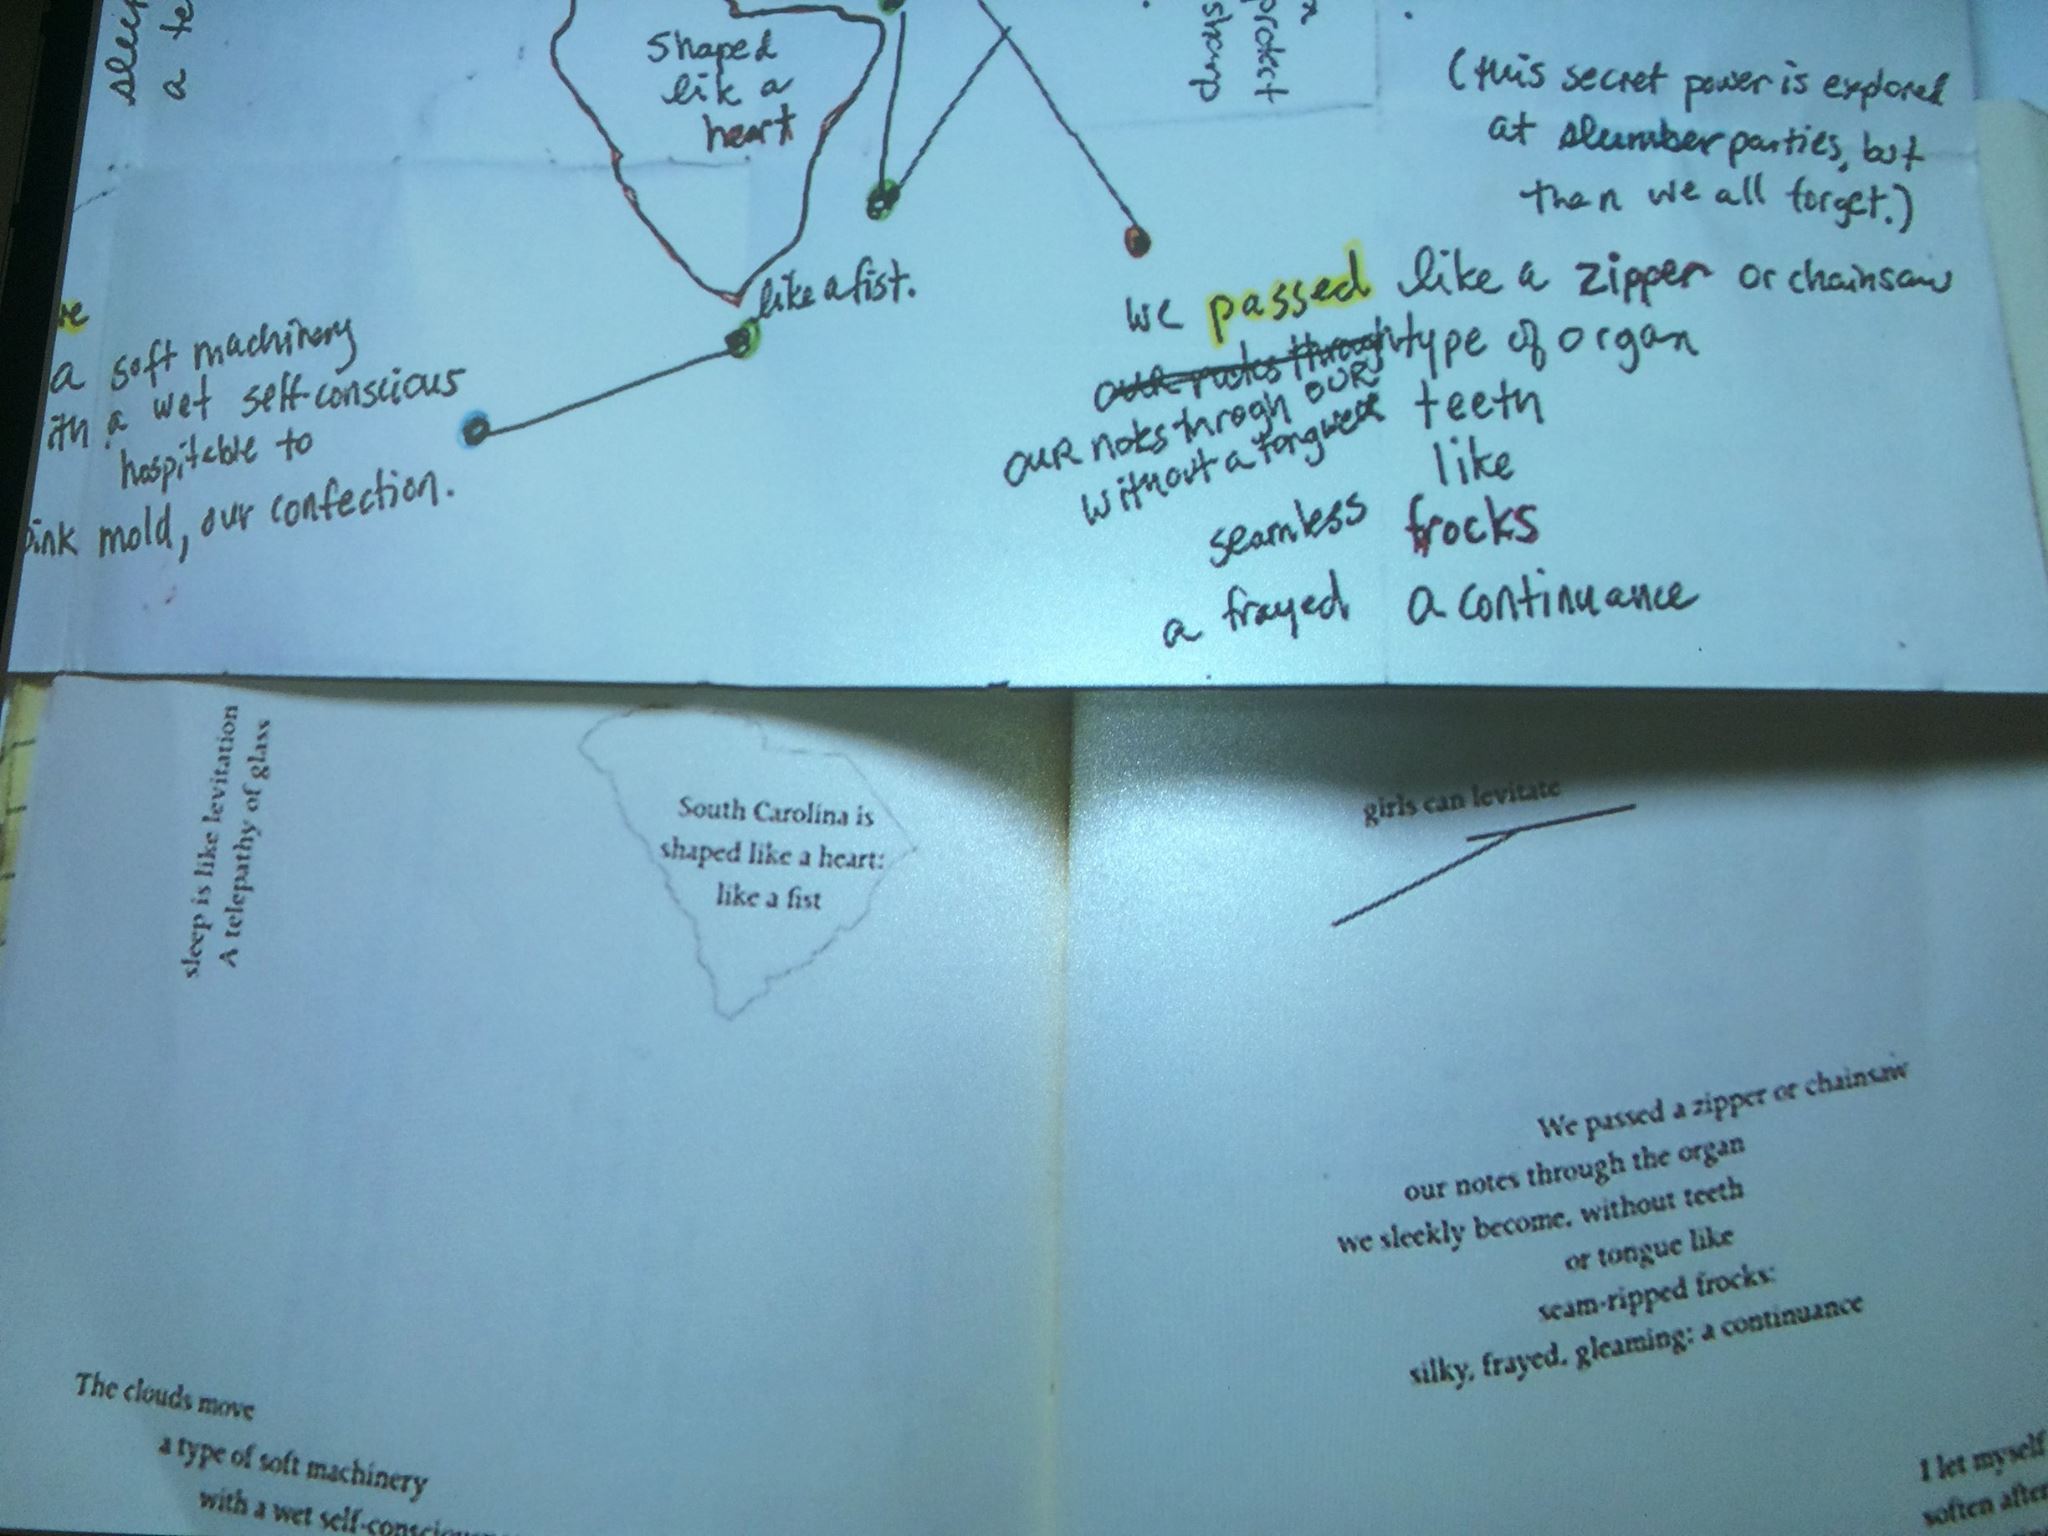 sleep
a te
shaped
lik a
heart
like a fist.
protect
(this secret power is explored
at slumber parties, but
then we all forget.)
a soft machinery
ith a wet self-conscious
hospitable to
pink mold, our confection.
we passed like a zipper or chainsaw
our notes through type of organ
our notes throgh our teeth
without a tongue like
seamless frocks
a frayed a continuance
sleep is like levitation
A telepathy of glass
South Carolina is
shaped like a heart:
like a fist
girls can levitate
We passed a zipper or chainsaw
our notes through the organ
we sleekly become, without teeth
or tongue like
seam-ripped frocks:
silky, frayed, gleaming: a continuance
The clouds move
a type of soft machinery
with a wet self-conscious
I let myself
soften after